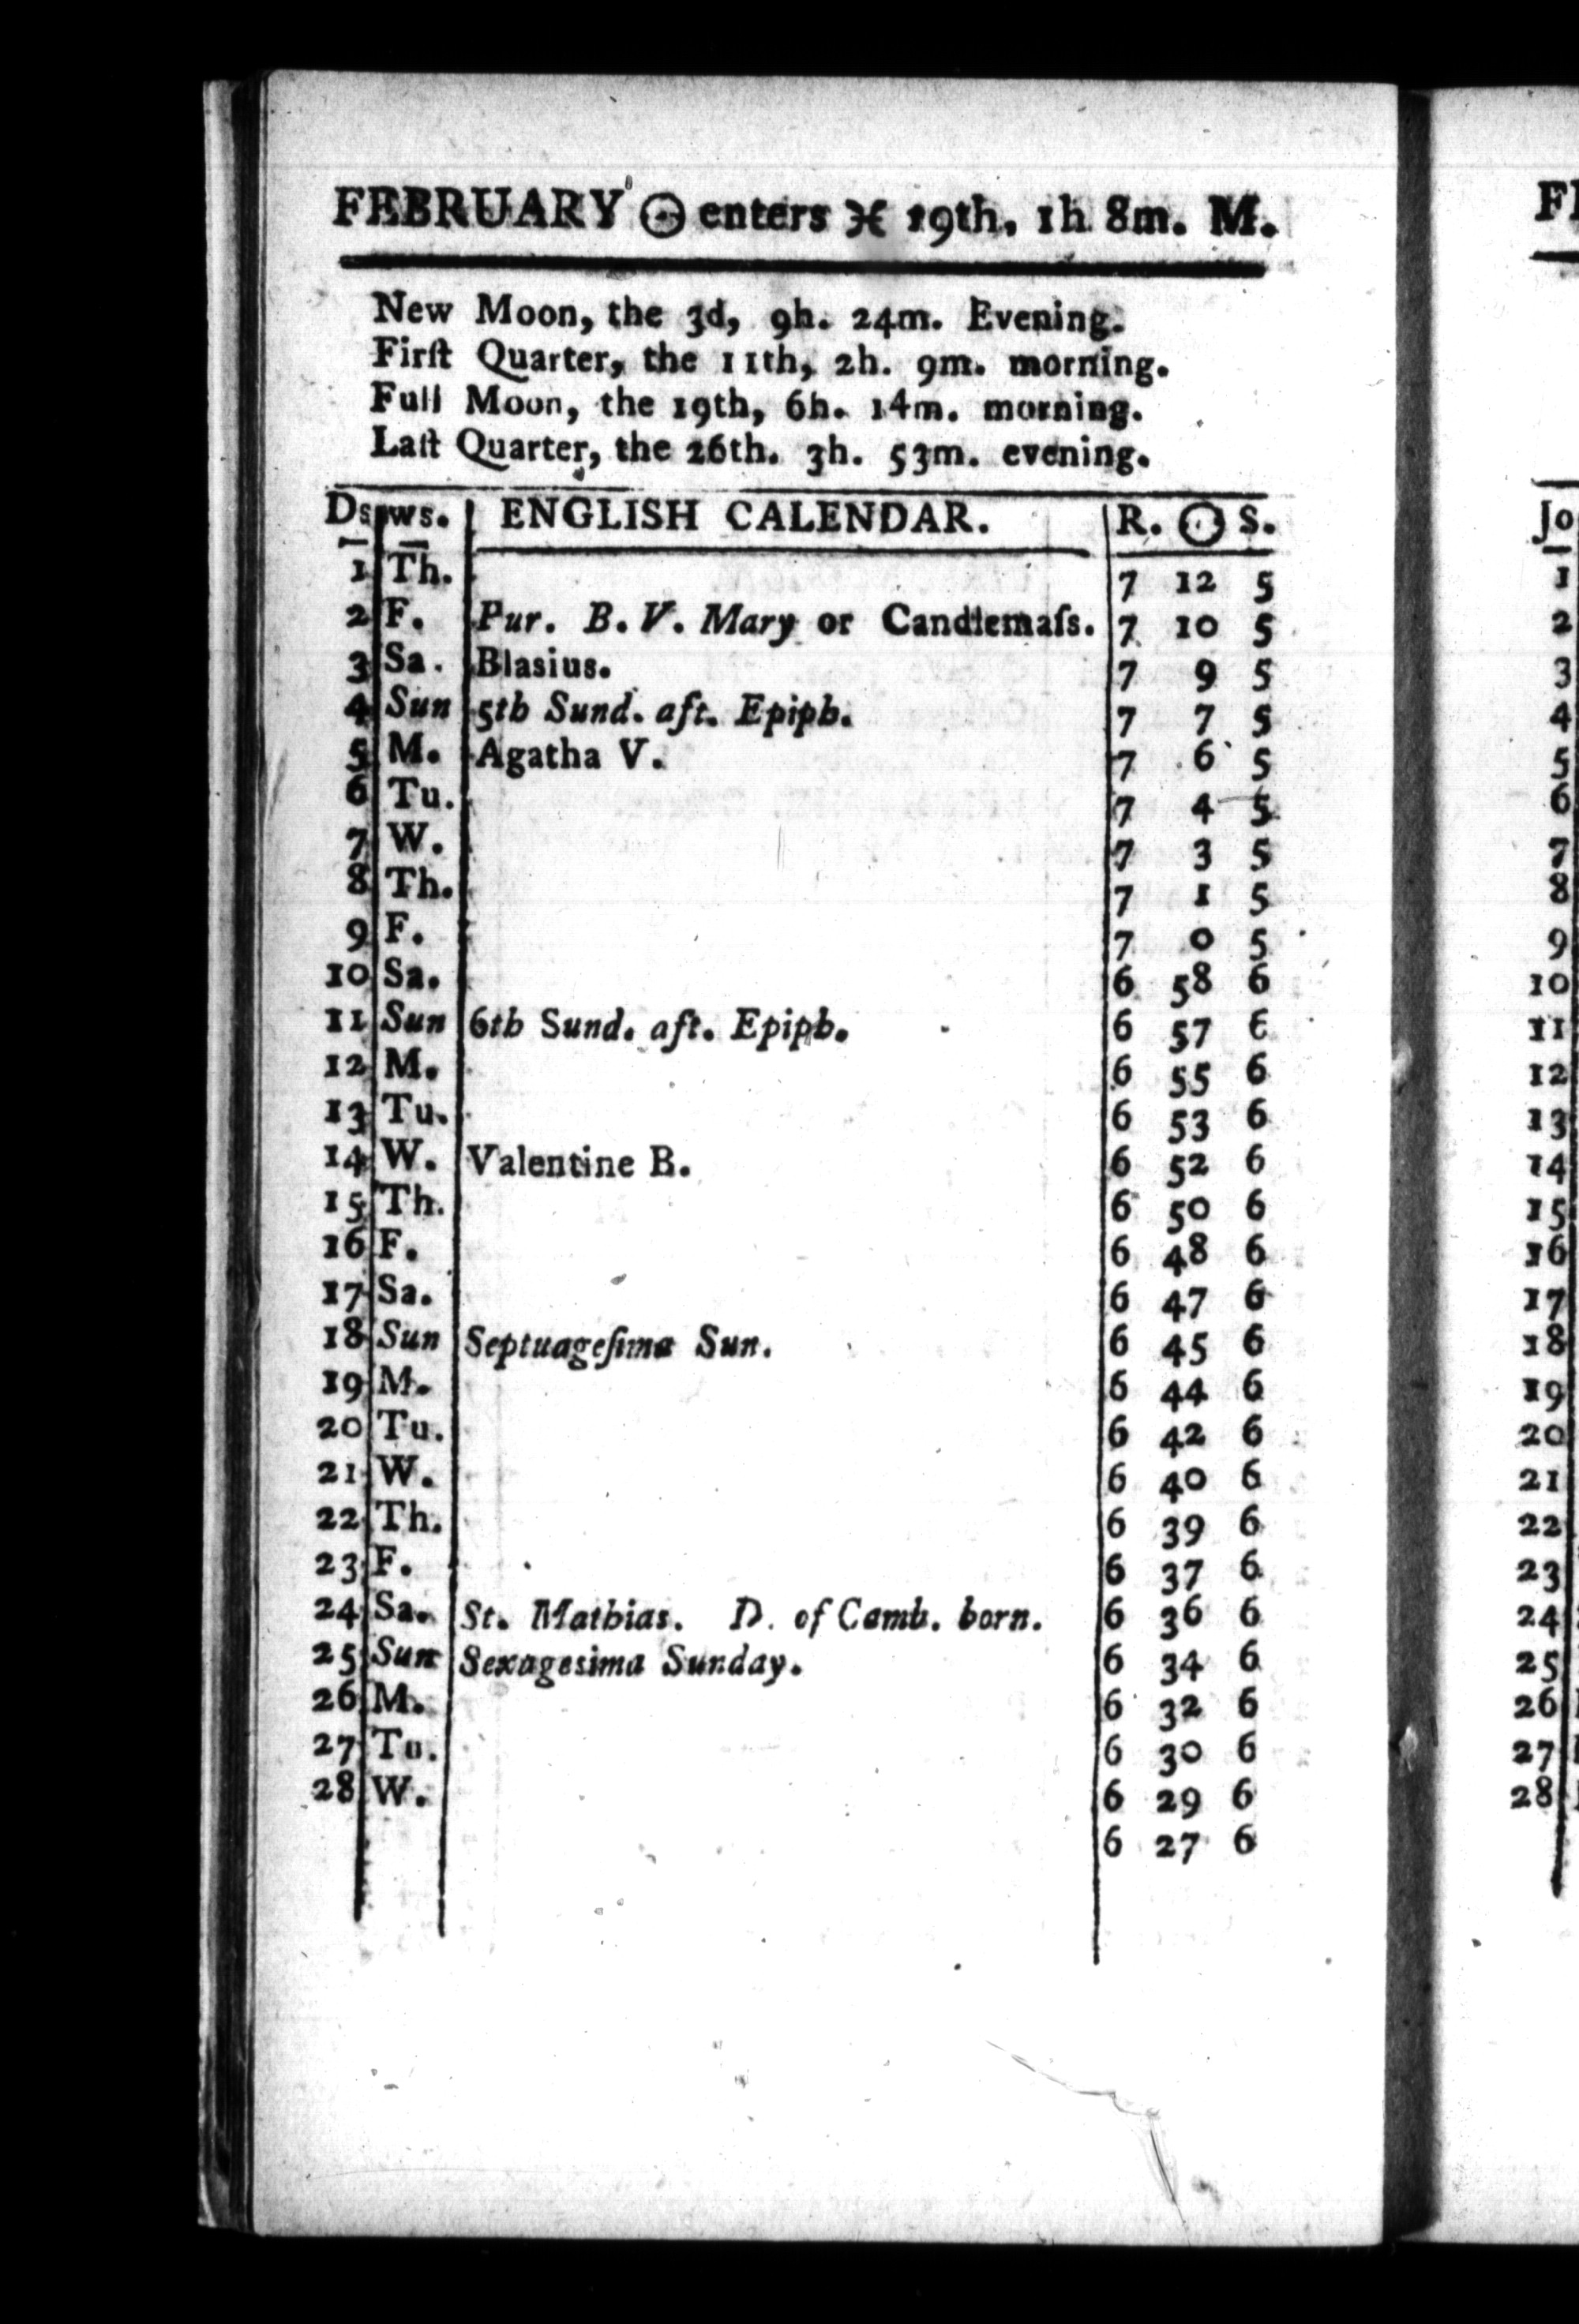 FEBRUARY ☉ enters ♓ 19th, 1h 8m. M.
New Moon, the 3d, 9h. 24m. Evening.
Firſt Quarter, the 11th, 2h. 9m. morning.
Full Moon, the 19th, 6h. 14m. morning.
Laſt Quarter, the 26th. 3h. 53m. evening.
Ds ws. ENGLISH CALENDAR. R. ☉ S.
1 Th. 7 12 5
2 F. Pur. B. V. Mary or Candlemaſs. 7 10 5
3 Sa. Blasius. 7 9 5
4 Sun 5th Sund. aft. Epiph. 7 7 5
5 M. Agatha V. 7 6 5
6 Tu. 7 4 5
7 W. 7 3 5
8 Th. 7 1 5
9 F. 7 0 5
10 Sa. 6 58 6
11 Sun 6th Sund. aft. Epiph. 6 57 6
12 M. 6 55 6
13 Tu. 6 53 6
14 W. Valentine B. 6 52 6
15 Th. 6 50 6
16 F. 6 48 6
17 Sa. 6 47 6
18 Sun Septuageſima Sun. 6 45 6
19 M. 6 44 6
20 Tu. 6 42 6
21 W. 6 40 6
22 Th. 6 39 6
23 F. 6 37 6
24 Sa. St. Mathias. D. of Camb. born. 6 36 6
25 Sun Sexagesima Sunday. 6 34 6
26 M. 6 32 6
27 Tu. 6 30 6
28 W. 6 29 6
6 27 6
Jo
1
2
3
4
5
6
7
8
9
10
11
12
13
14
15
16
17
18
19
20
21
22
23
24
25
26
27
28